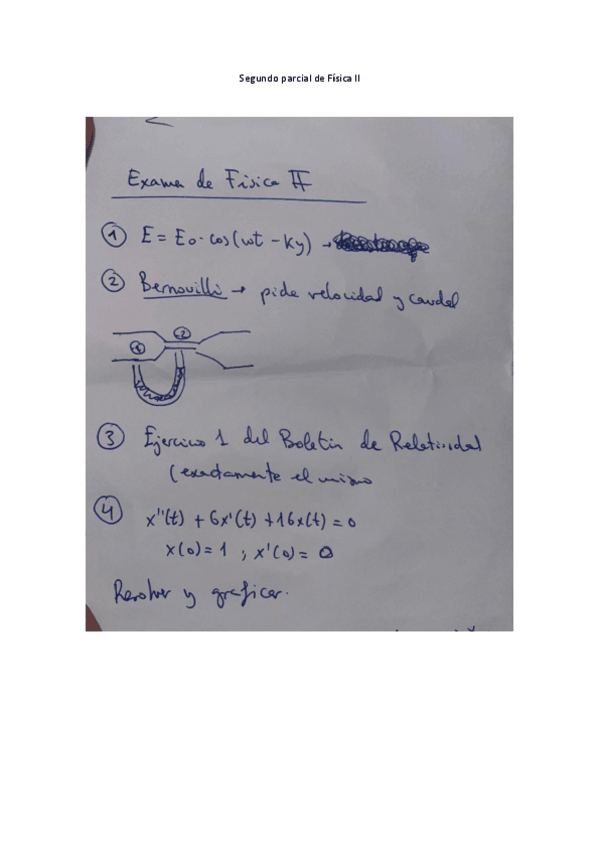 Segundo parcial de Física II
Examen de Física II
① E = E₀·cos(ωt - Ky) →
② Bernouilli → pide velocidad y caudal
① ②
③ Ejercicio 1 del Boletín de Relatividad
(exactamente el mismo
④ x''(t) + 6x'(t) + 16x(t) = 0
x(0) = 1 , x'(0) = 0
Resolver y graficar.